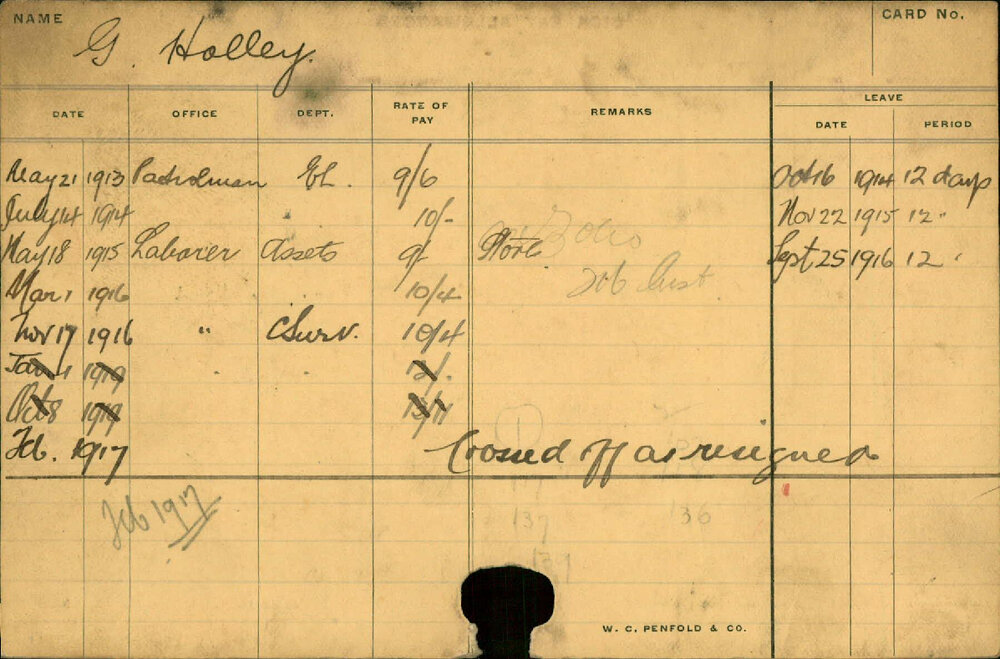 NAME
CARD No.
G. Holley.
LEAVE
DATE OFFICE DEPT. RATE OF PAY REMARKS DATE PERIOD
May 21 1913 Patrolman EL. 9/6 Oct 16 1914 12 days
July 14 1914 10/- Nov 22 1915 12 "
May 18 1915 Laborer Assets 9/- Store Sept 25 1916 12 "
Mar 1 1916 10/4
Nov 17 1916 " CSurv. 10/4
Jan 1 1919 12/-
Oct 8 1919
Feb. 1917 Crossed off as resigned
Feb 1917
137 136
137
W. C. PENFOLD & CO.